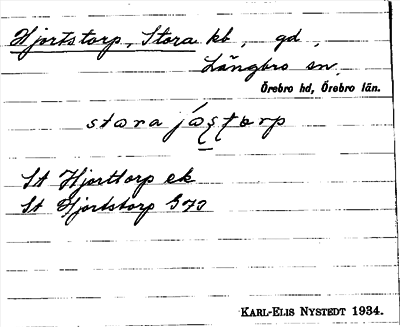 Hjortstorp, Stora kb, gd,
Längbro sn,
Örebro hd, Örebro län.
stora
St Hjorttorp ek
St Hjortstorp
KARL-ELIS NYSTEDT 1934.